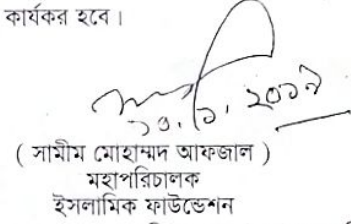 কার্যকর হবে।
১০.১.২০১৭
( সামীম মোহাম্মদ আফজাল )
মহাপরিচালক
ইসলামিক ফাউন্ডেশন